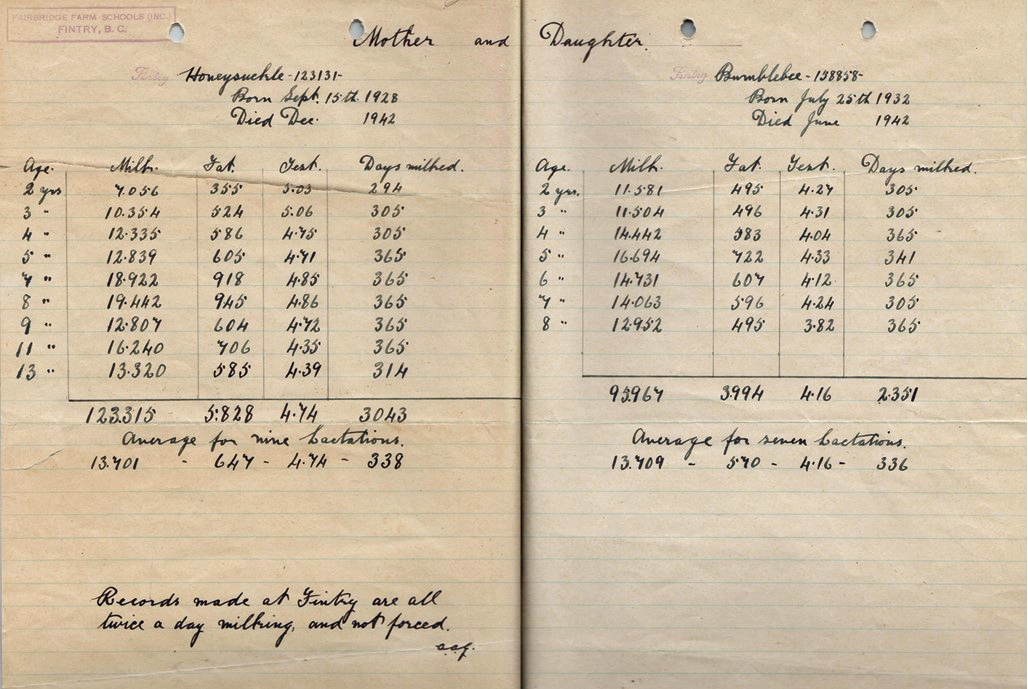 FAIRBRIDGE FARM SCHOOLS (INC.)
FINTRY, B.C.
Mother and Daughter.
Fintry Honeysuckle -123131-
Born Sept. 15th 1928
Died Dec. 1942
Age. Milk. Fat. Test. Days milked.
2 yrs 7.056 355 5.03 294
3 " 10.354 524 5.06 305
4 " 12.335 586 4.75 305
5 " 12.839 605 4.71 365
7 " 18.922 918 4.85 365
8 " 19.442 945 4.86 365
9 " 12.807 604 4.72 365
11 " 16.240 706 4.35 365
13 " 13.320 585 4.39 314
123.315 5.828 4.74 3043
Average for nine Lactations.
13.701 - 647 - 4.74 - 338
Records made at Fintry are all
twice a day milking, and not forced.
a.a.g.
Fintry Bumblebee -158858-
Born July 25th 1932
Died June 1942
Age. Milk. Fat. Test. Days milked.
2 yrs. 11.581 495 4.27 305
3 " 11.504 496 4.31 305
4 " 14.442 583 4.04 365
5 " 16.694 722 4.33 341
6 " 14.731 607 4.12 365
7 " 14.063 596 4.24 305
8 " 12.952 495 3.82 365
95.967 3.994 4.16 2.351
Average for seven Lactations.
13.709 - 570 - 4.16 - 336